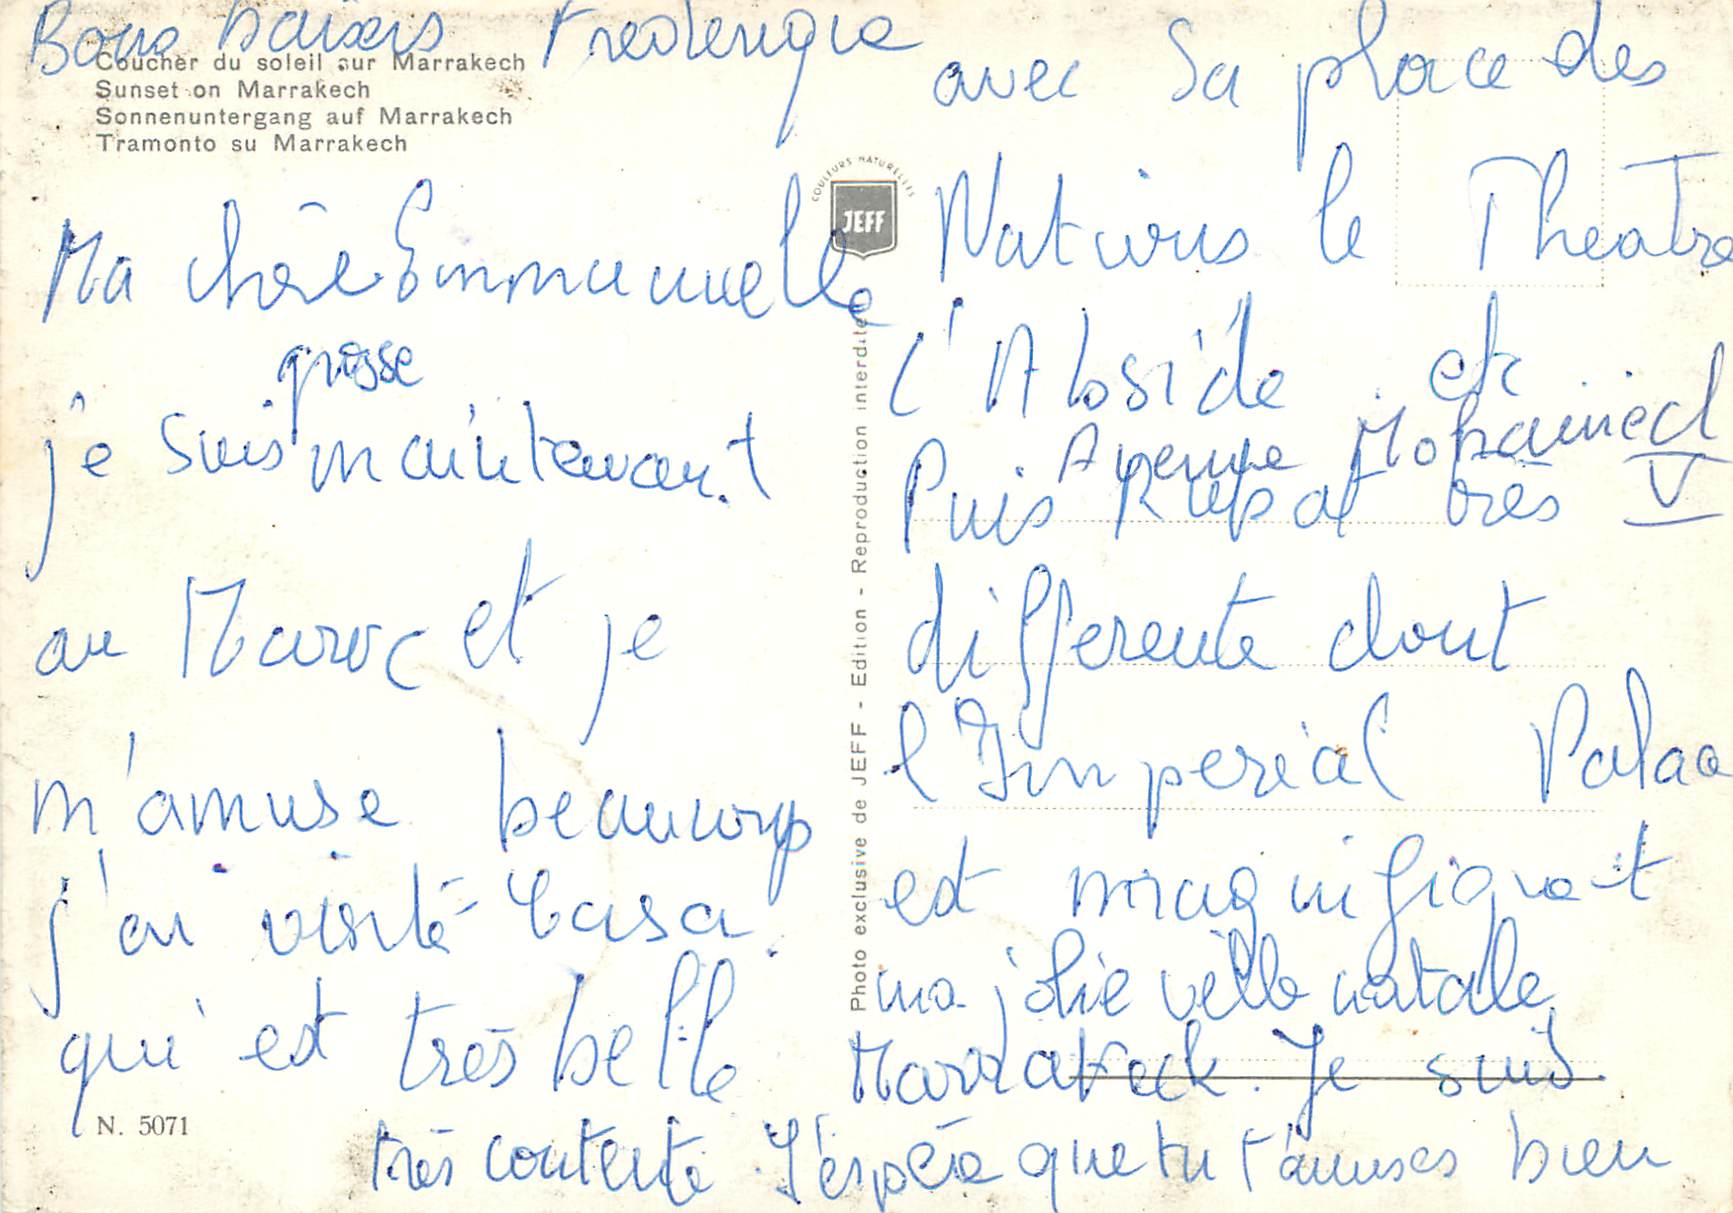 Bons baisers Frederique
Coucher du soleil sur Marrakech
Sunset on Marrakech
Sonnenuntergang auf Marrakech
Tramonto su Marrakech
Ma chère Emmanuelle
grosse
je suis maintenant
au Maroc et je
m'amuse beaucoup
j'ai visité Casa
qui est très belle
N. 5071
COULEURS NATURELLES
JEFF
Photo exclusive de JEFF - Edition - Reproduction interdite
avec sa place des
Nations le Theatre
l'Abside etc
Avenue Mohamed V
Puis très
differente dont
l'Imperial Palace
est magnifique et
ma jolie ville natale
Marrakeck. Je suis
très contente J'espère que tu t'amuses bien